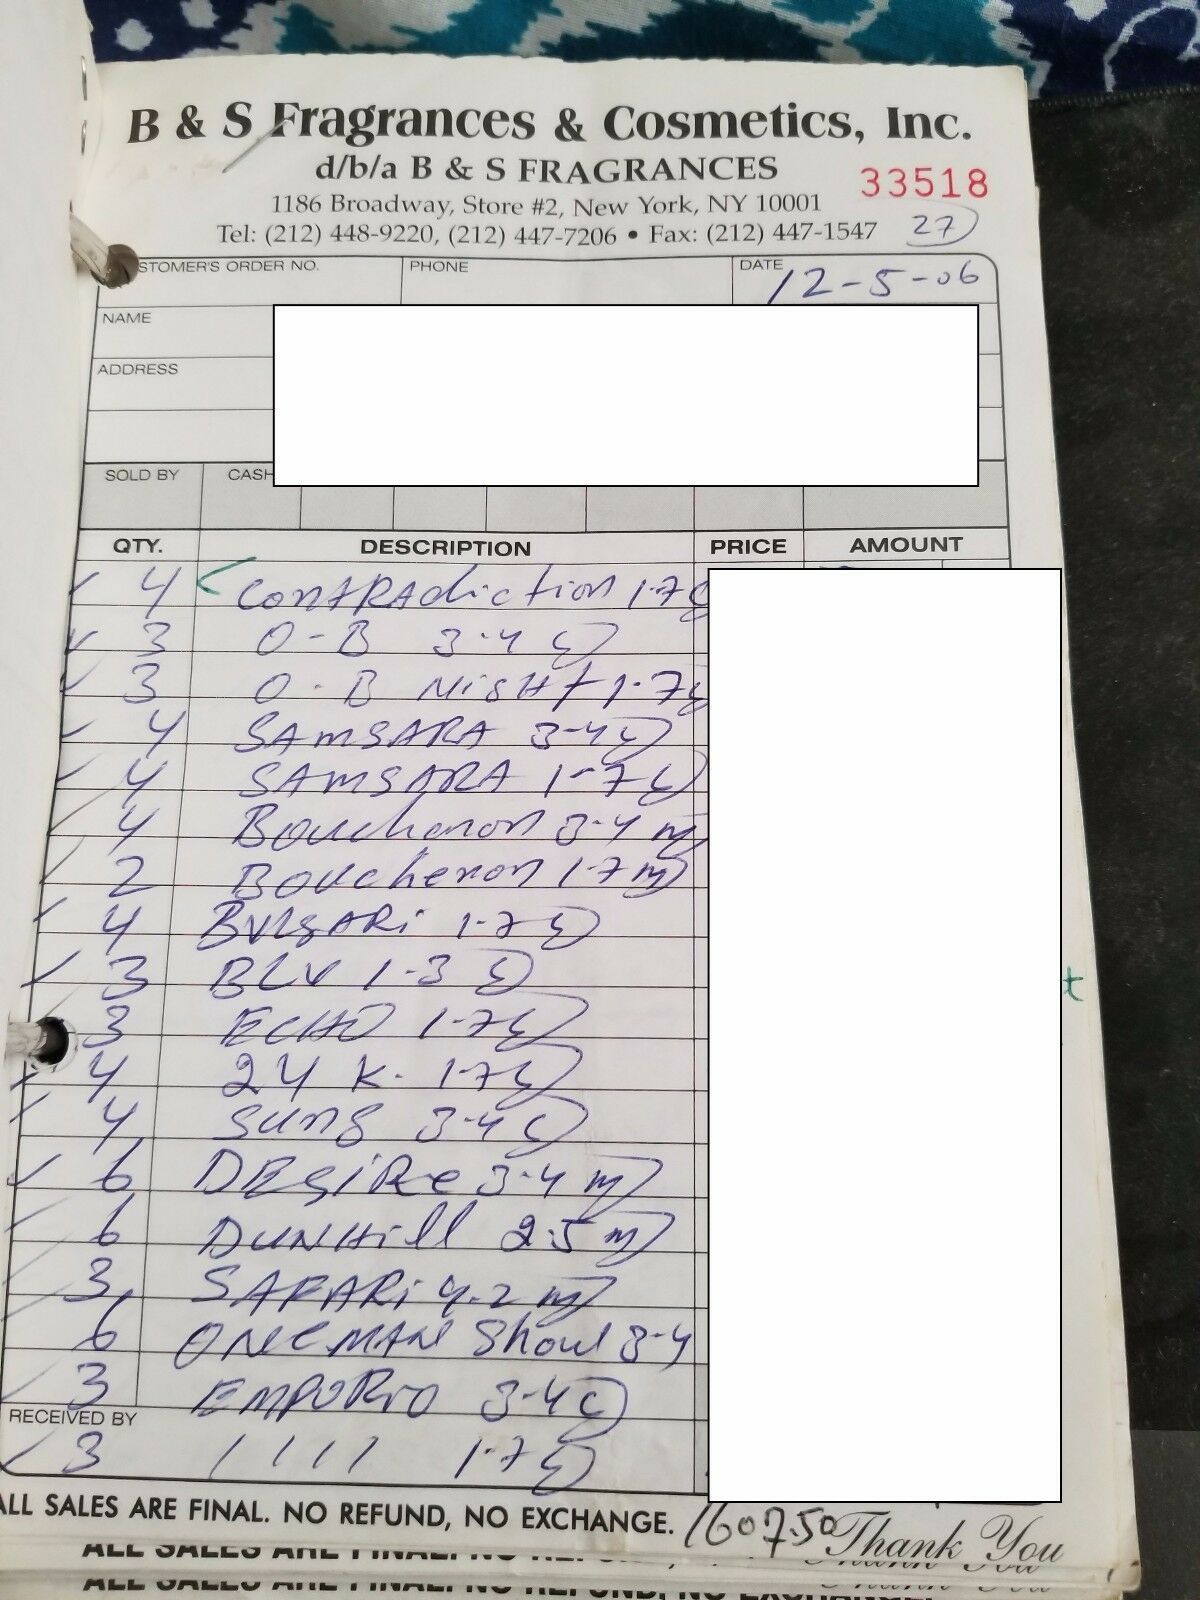 B & S Fragrances & Cosmetics, Inc.
d/b/a B & S FRAGRANCES
33518
1186 Broadway, Store #2, New York, NY 10001
Tel: (212) 448-9220, (212) 447-7206 • Fax: (212) 447-1547
27
STOMER'S ORDER NO. PHONE DATE 12-5-06
NAME
ADDRESS
SOLD BY CASH
QTY. DESCRIPTION PRICE AMOUNT
4 CONTRAdiction 1.7
3 O-B 3.4
3 O-B NigHt 1.7
4 SAMSARA 3-4
4 SAMSARA 1-7
4 Boucheron 3-4 m
2 Boucheron 1.7 m
4 BVlgARi 1-7
3 BLV 1-3
3 ECHO 1-7
4 24 K. 1-7
4 Sung 3-4
6 DESiRe 3-4 m
6 DUNHill 2.5 m
3 SAFARi 4.2 m
6 ONE MAN Show 3-4
3 EMPORIO 3-4
RECEIVED BY
3 1 1 1 1 1-7
ALL SALES ARE FINAL. NO REFUND, NO EXCHANGE. 1607.50 Thank You